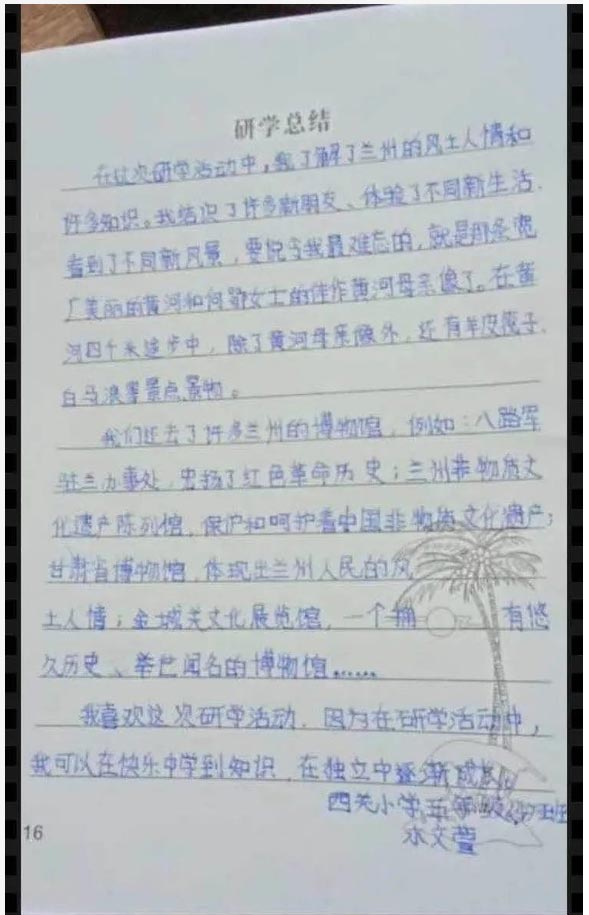 研学总结
在这次研学活动中,我了解了兰州的风土人情和
许多知识。我结识了许多新朋友、体验了不同新生活、
看到了不同新风景,要说令我最难忘的,就是那条宽
广美丽的黄河和何鄂女士的佳作黄河母亲像了。在黄
河四千米徒步中,除了黄河母亲像外,还有羊皮筏子、
白马浪等景点景物。
我们还去了许多兰州的博物馆,例如:八路军
驻兰办事处,宏扬了红色革命历史;兰州非物质文
化遗产陈列馆,保护和呵护着中国非物质文化遗产;
甘肃省博物馆,体现出兰州人民的风
土人情;金城关文化展览馆,一个拥有悠
久历史、举世闻名的博物馆……
我喜欢这次研学活动,因为在研学活动中,
我可以在快乐中学到知识,在独立中逐渐成长。
西关小学五年级
水文萱
16